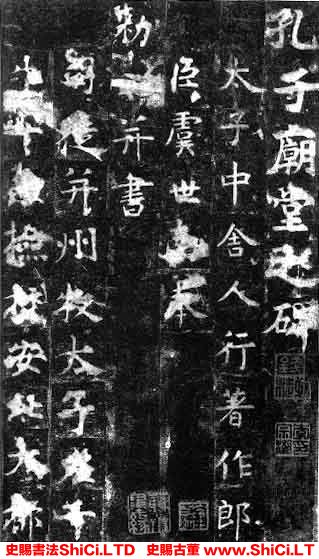 孔子廟堂之碑
太子中舍人行著作郎
臣虞世南奉
勅撰并書
司徒并州牧太子左千
牛率兼檢校安北大都
史賜書法ShiCi.LTD 史賜古董 www.ShiCi.LT